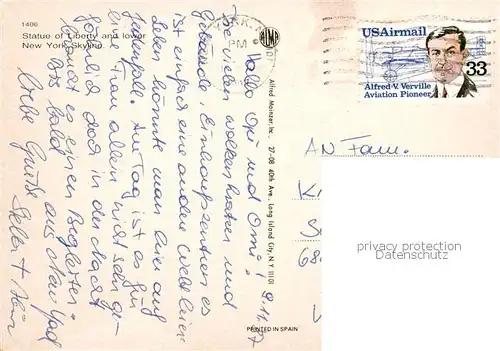 1406
Statue of Liberty and lower
New York Skyline.
Hallo Opi und Omi! 9.11.87
Die vielen Wolkenkratzer und
Gebäude, Einkaufszentren es
ist einfach eine andere Welt hier
leben könnte man hier auf
jedenfall. Am Tag ist es für
eine Frau allein nicht sehr ge-
fährlich doch in der Nacht
braucht es einen Begleiter.
Bis bald aus New York
Liebe Grüße
Alfred Mainzer, Inc., 27-08 40th Ave., Long Island City, N.Y. 11101
PRINTED IN SPAIN
PM
USAirmail
33
Alfred V. Verville
Aviation Pioneer
AN Fam.
privacy protection
Datenschutz